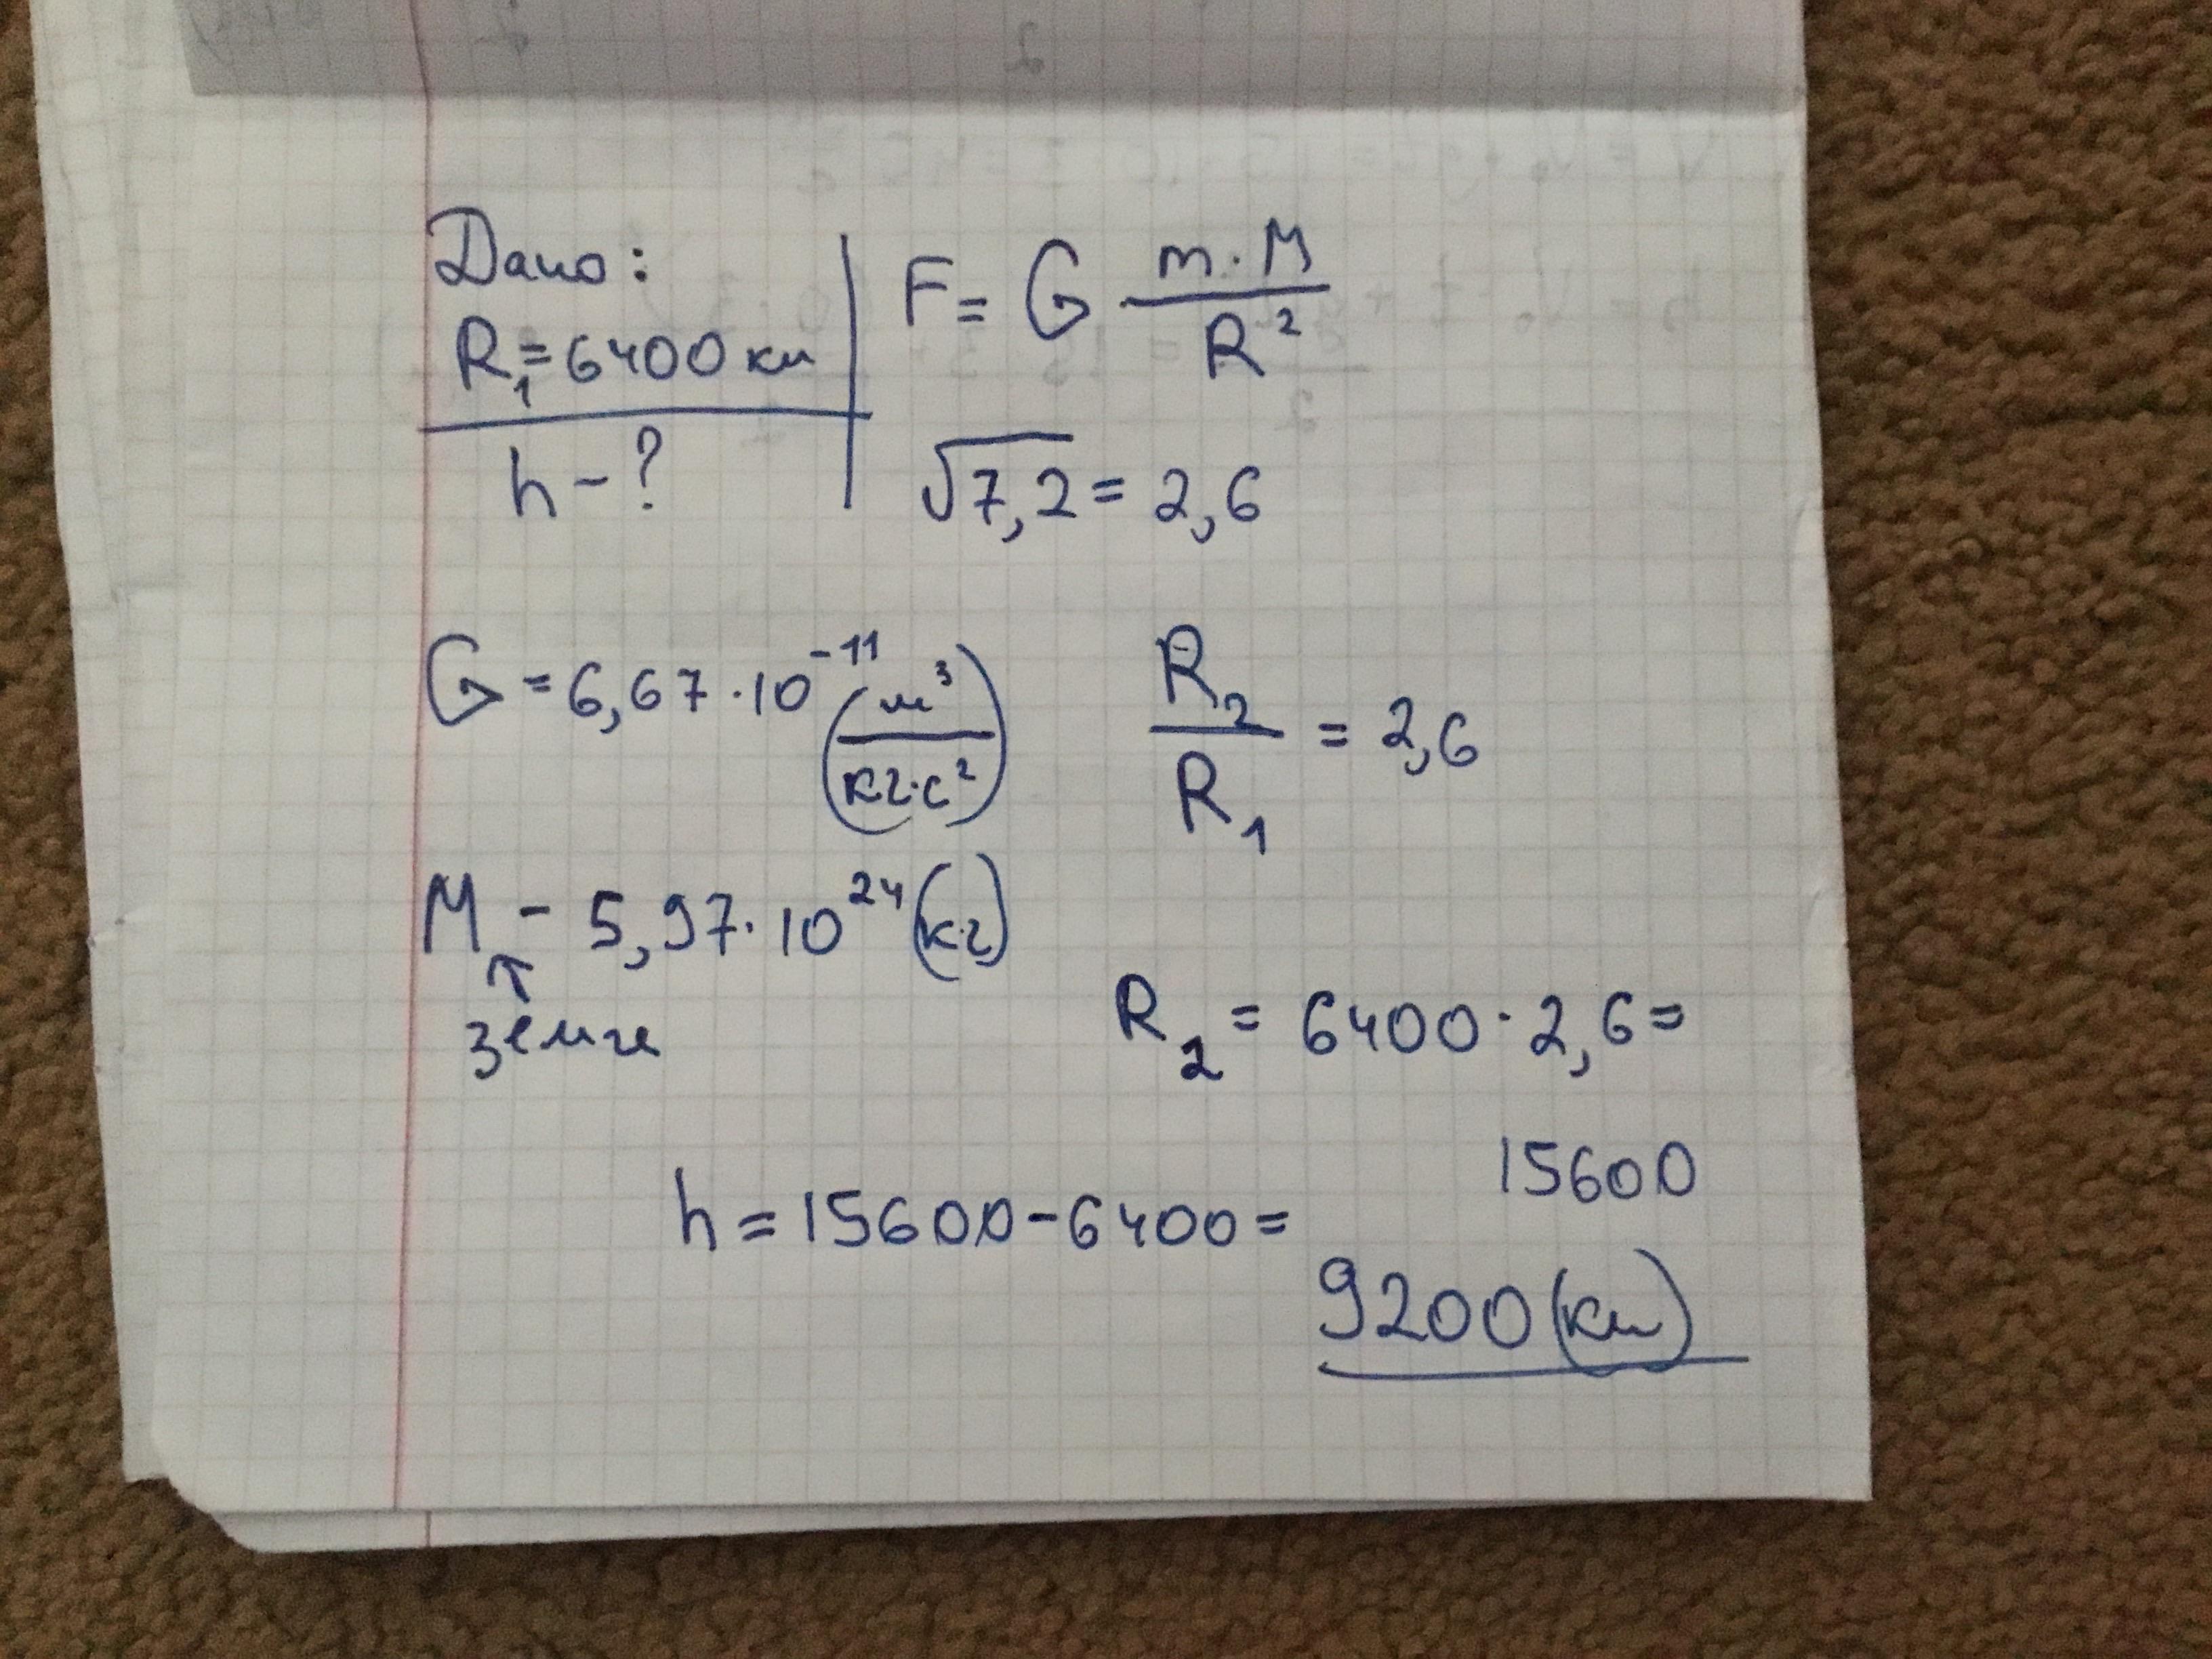 Дано:
R₁=6400 км
h-?
F = G m·M / R²
√7,2 = 2,6
G = 6,67·10⁻¹¹ (м³ / кг·с²)
R₂ / R₁ = 2,6
M - 5,97·10²⁴ (кг)
R₂ = 6400·2,6=
15600
h = 15600-6400=
9200 (км)